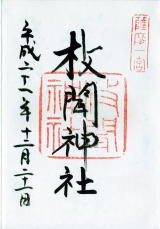 薩摩一宮
枚聞神社
平成二十一年十二月二十一日